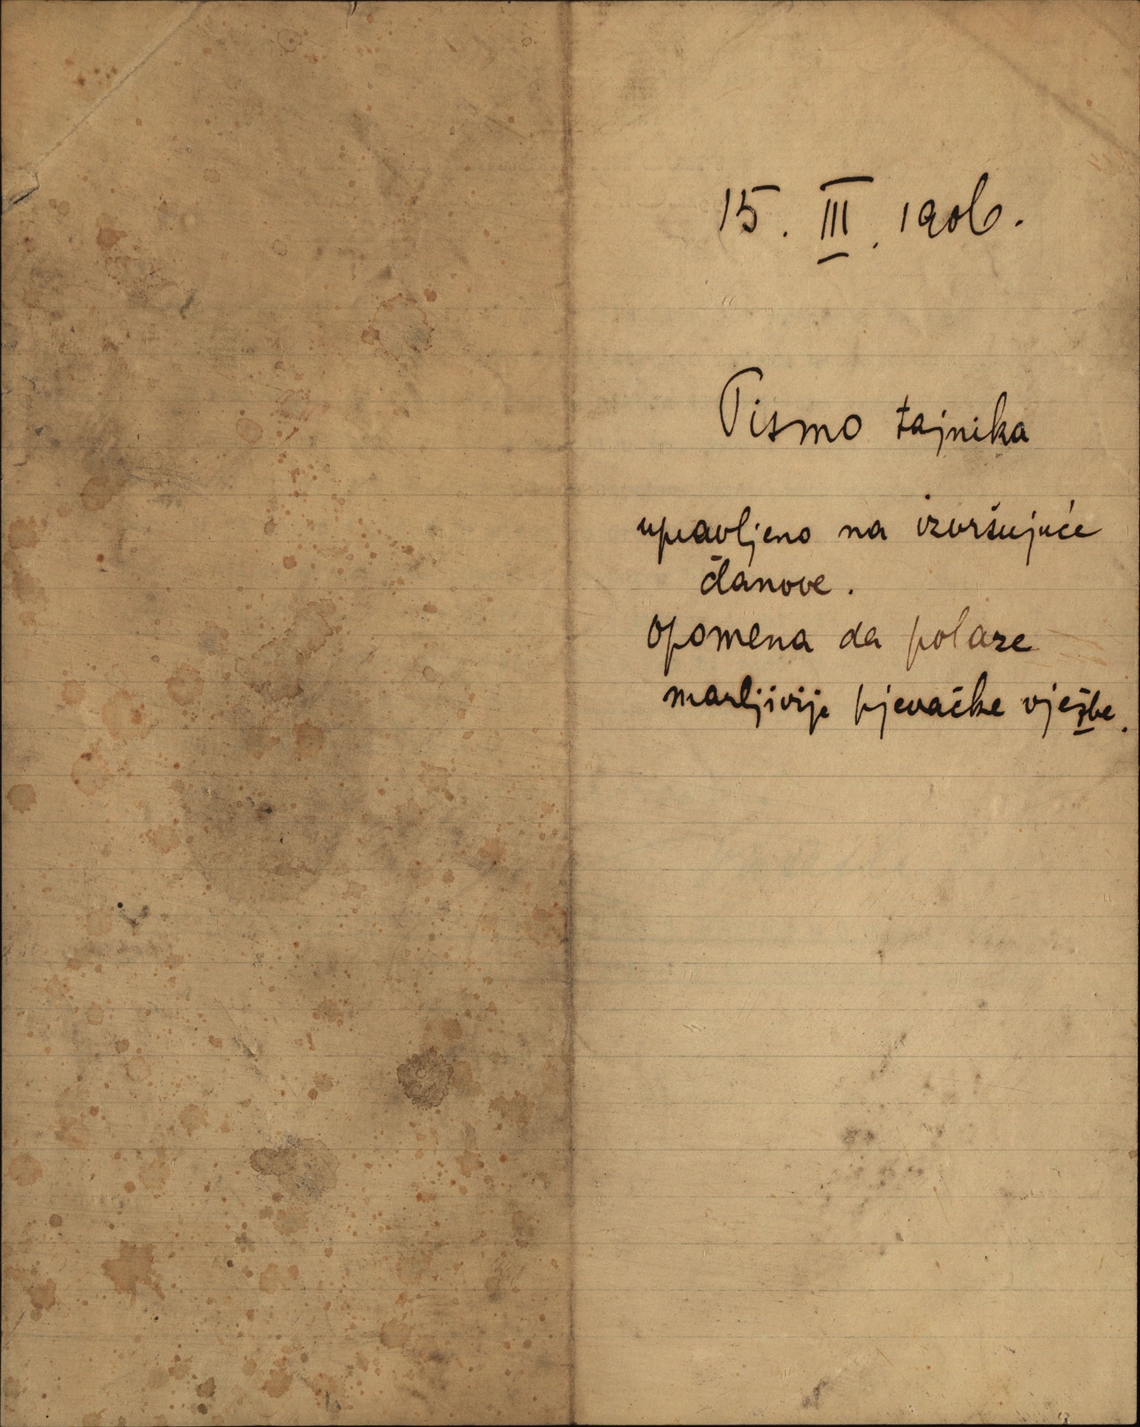 15. III. 1906.
Pismo tajnika
upravljeno na izvršujuće
članove.
Opomena da polaze
marljivije pjevačke vježbe.